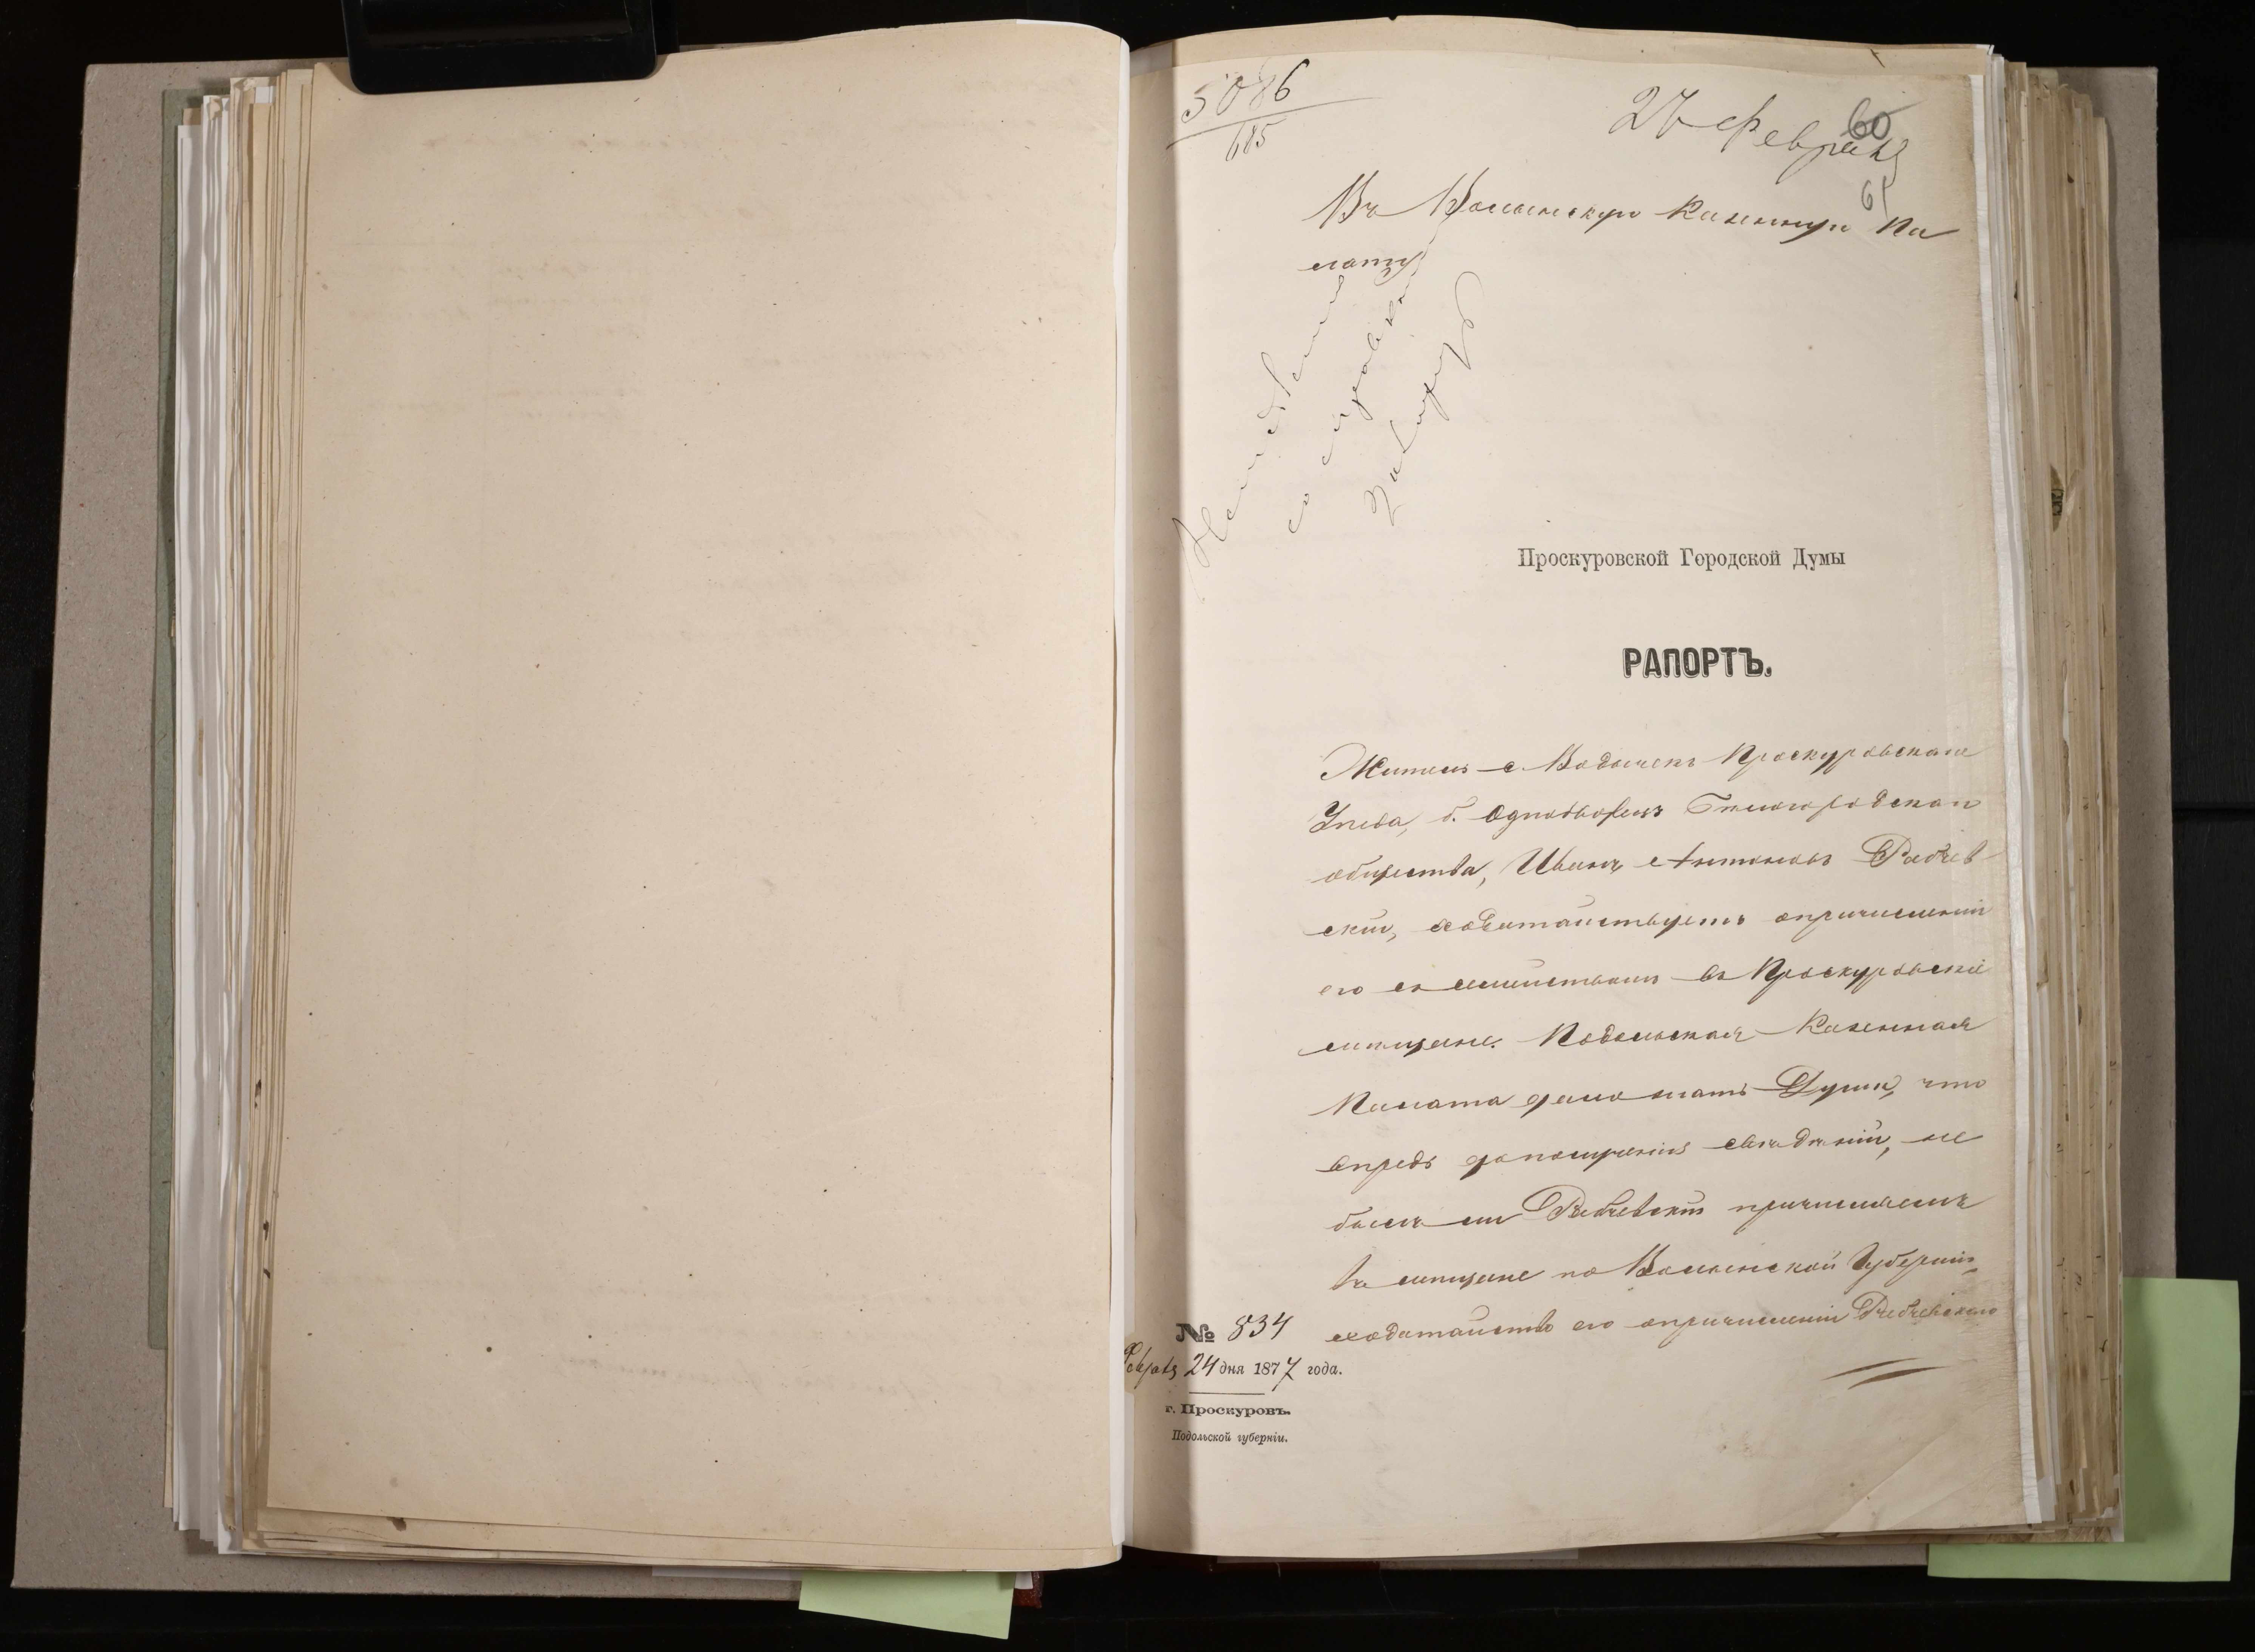 5086
685
27 февраля
60
61
Въ Волынскую Казенную Па
лату
со справкою
Проскуровской Городской Думы
РАПОРТЪ.
Житель с. Водычекъ Проскуровскаго
Уезда, б. Однодворецъ Бѣлогородскаго
общества, Иванъ Антоновъ
ский, ходатайствуетъ опричисленіи
его съ семействомъ въ Проскуровскіе
мѣщане. Подольская Казенная
Палата дала знать Думѣ, что
впредь до полученія свѣдѣній, не
былъ ли причисляемъ
въ мѣщане по Волынской Губерніи,
ходатайство его опричисленіи
№ 834
Февраля 24 дня 1877 года.
г. Проскуровъ.
Подольской губерніи.